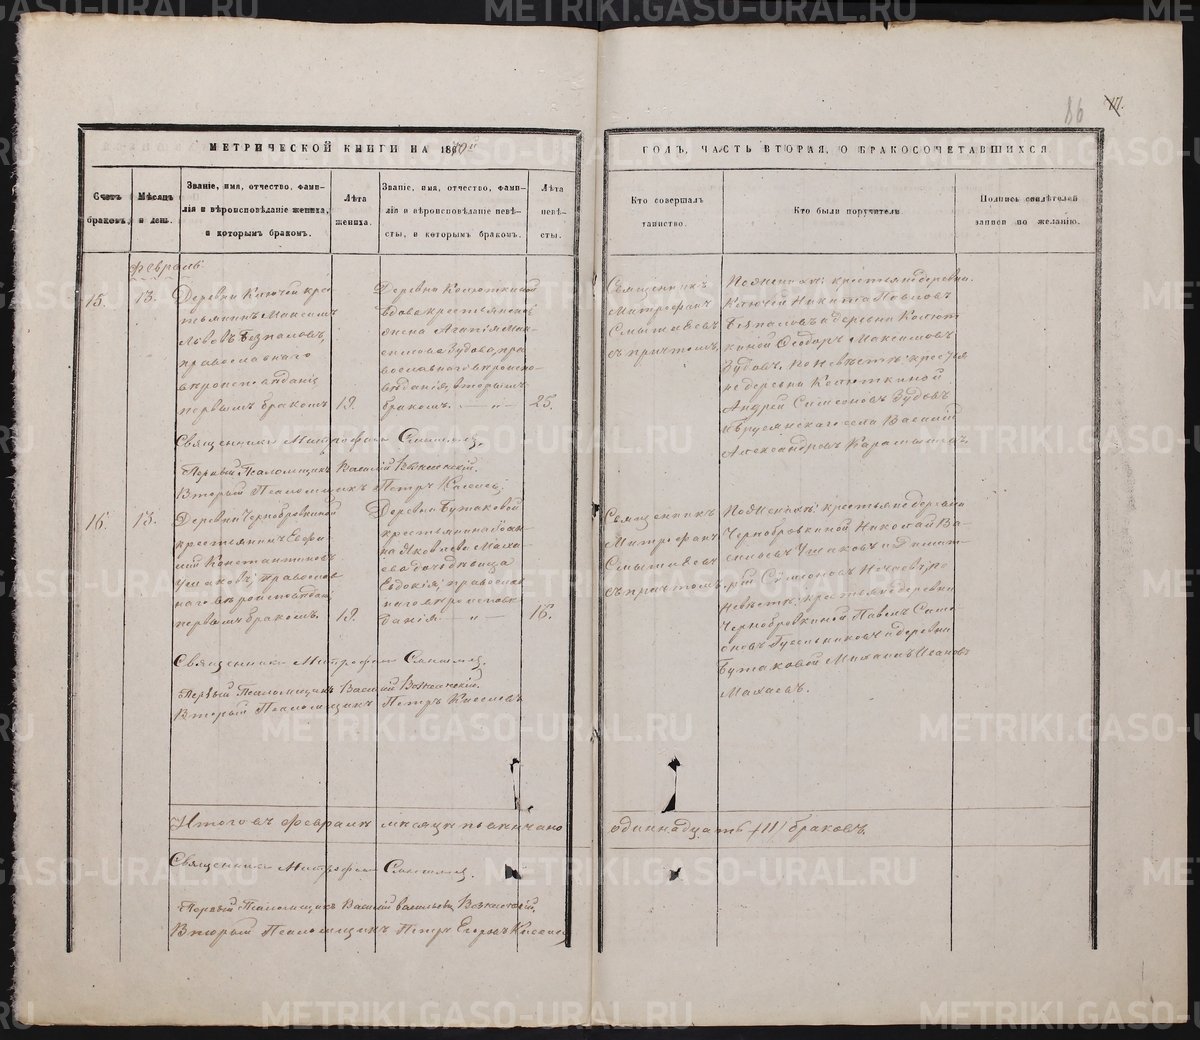 86
117.
МЕТРИЧЕСКОЙ КНИГИ НА 1870й
ГОДЪ, ЧАСТЬ ВТОРАЯ, О БРАКОСОЧЕТАВШИХСЯ
Счетъ браковъ.
Мѣсяцъ и день.
Званіе, имя, отчество, фами-
лія и вѣроисповѣданіе жениха,
и которымъ бракомъ.
Лѣта
жениха.
Званіе, имя, отчество, фами-
лія и вѣроисповѣданіе невѣ-
сты, и которымъ бракомъ.
Лѣта
невѣ-
сты.
Кто совершалъ
таинство.
Кто были поручители
Подпись свидѣтелей
записи по желанію.
Февраль
15.
13.
Деревни Ключей кре-
стьянинъ Максимъ
Львовъ Безпаловъ,
православнаго
вѣроисповѣданія
первымъ бракомъ
19.
Деревни Колюткиной
вдова крестьянская
жена Агапія Мак-
симова Зудова, пра-
вославнаго вѣроиспо-
вѣданія, вторымъ
бракомъ. — „ —
25.
Священникъ
Митрофанъ
съ причтомъ.
По женихѣ: крестьяне деревни
Ключей Никита Павловъ
Безпаловъ и деревни Колют
киной Ѳеодоръ Максимовъ
Зудовъ. По невѣстѣ: крестья
не деревни Колюткиной
Андрей Симеоновъ Зудовъ
и Бруслянскаго села Василій
Александровъ
Священникъ Митрофанъ
Первый Псаломщикъ Василій
Второй Псаломщикъ Петръ Киселевъ
16.
13.
Деревни Чернобровкиной
крестьянинъ Евфи-
мій Константиновъ
Ушаковъ, православ
наго вѣроисповѣданія
первымъ бракомъ.
19.
Деревни Бутаковой
крестьянина Іоан-
на Яковлева Маха-
ева дочь дѣвица
Евдокія, православ
наго вѣроисповѣ-
данія — „ —
16.
Священникъ
Митрофанъ
съ причтомъ.
По женихѣ: крестьяне деревни
Чернобровкиной Николай Ва-
сильевъ Ушаковъ и Димит
рій Симеоновъ
невѣстѣ: крестьяне деревни
Чернобровкиной Павелъ Симе
оновъ Гусельниковъ и деревни
Бутаковой Михаилъ Ивановъ
Махаевъ.
Священникъ Митрофанъ
Первый Псаломщикъ Василій
Второй Псаломщикъ Петръ Киселевъ
Итого въ Февралѣ мѣсяцѣ повѣнчано
одиннадцать /11/ браковъ.
Священникъ Митрофанъ
Первый Псаломщикъ Василій Васильевъ
Второй Псаломщикъ Петръ Егоровъ Киселевъ
METRIKI.GASO-URAL.RU